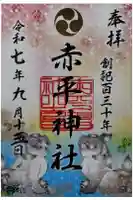 奉拝
創祀百三十年
赤平神社
令和七年九月十五日